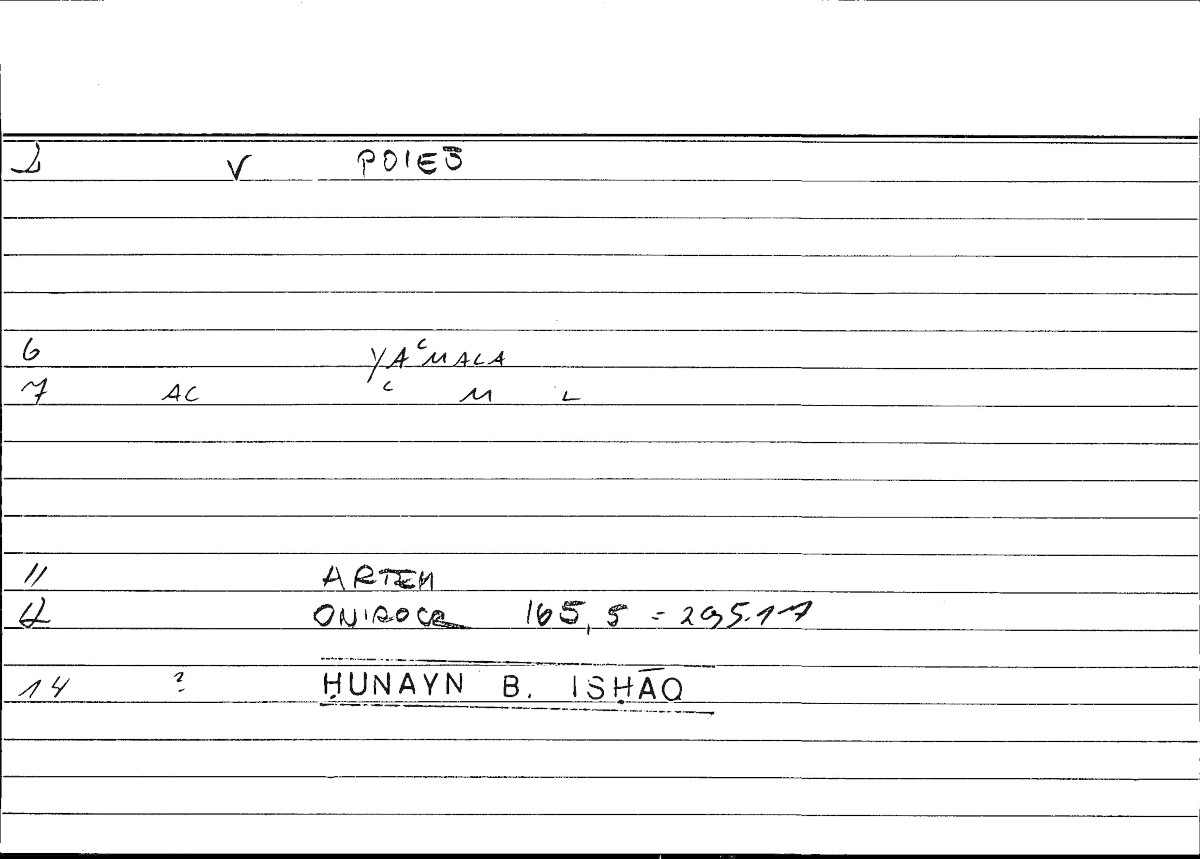 2 V POIEŌ
6 YAʿMALA
7 AC ʿ M L
11 ARTEM
12 ONIROCR 165,5 = 295.17
14 ? ḤUNAYN B. ISḤĀQ